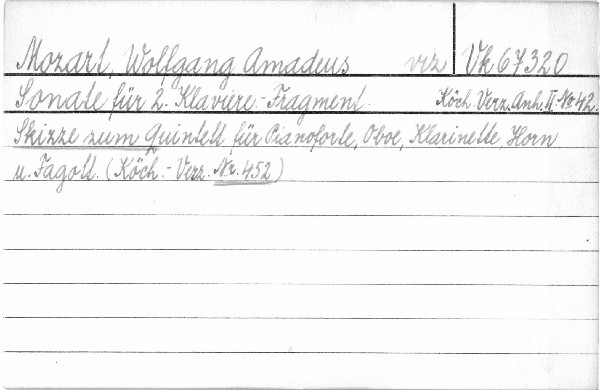 Mozart, Wolfgang Amadeus viz Vk 67320
Sonate für 2. Klaviere.-Fragment. Köch. Verz. Anh. II. No 42.
Skizze zum Quintett für Pianoforte, Oboe, Klarinette, Horn
u. Fagott. (Köch.-Verz. Nr. 452)